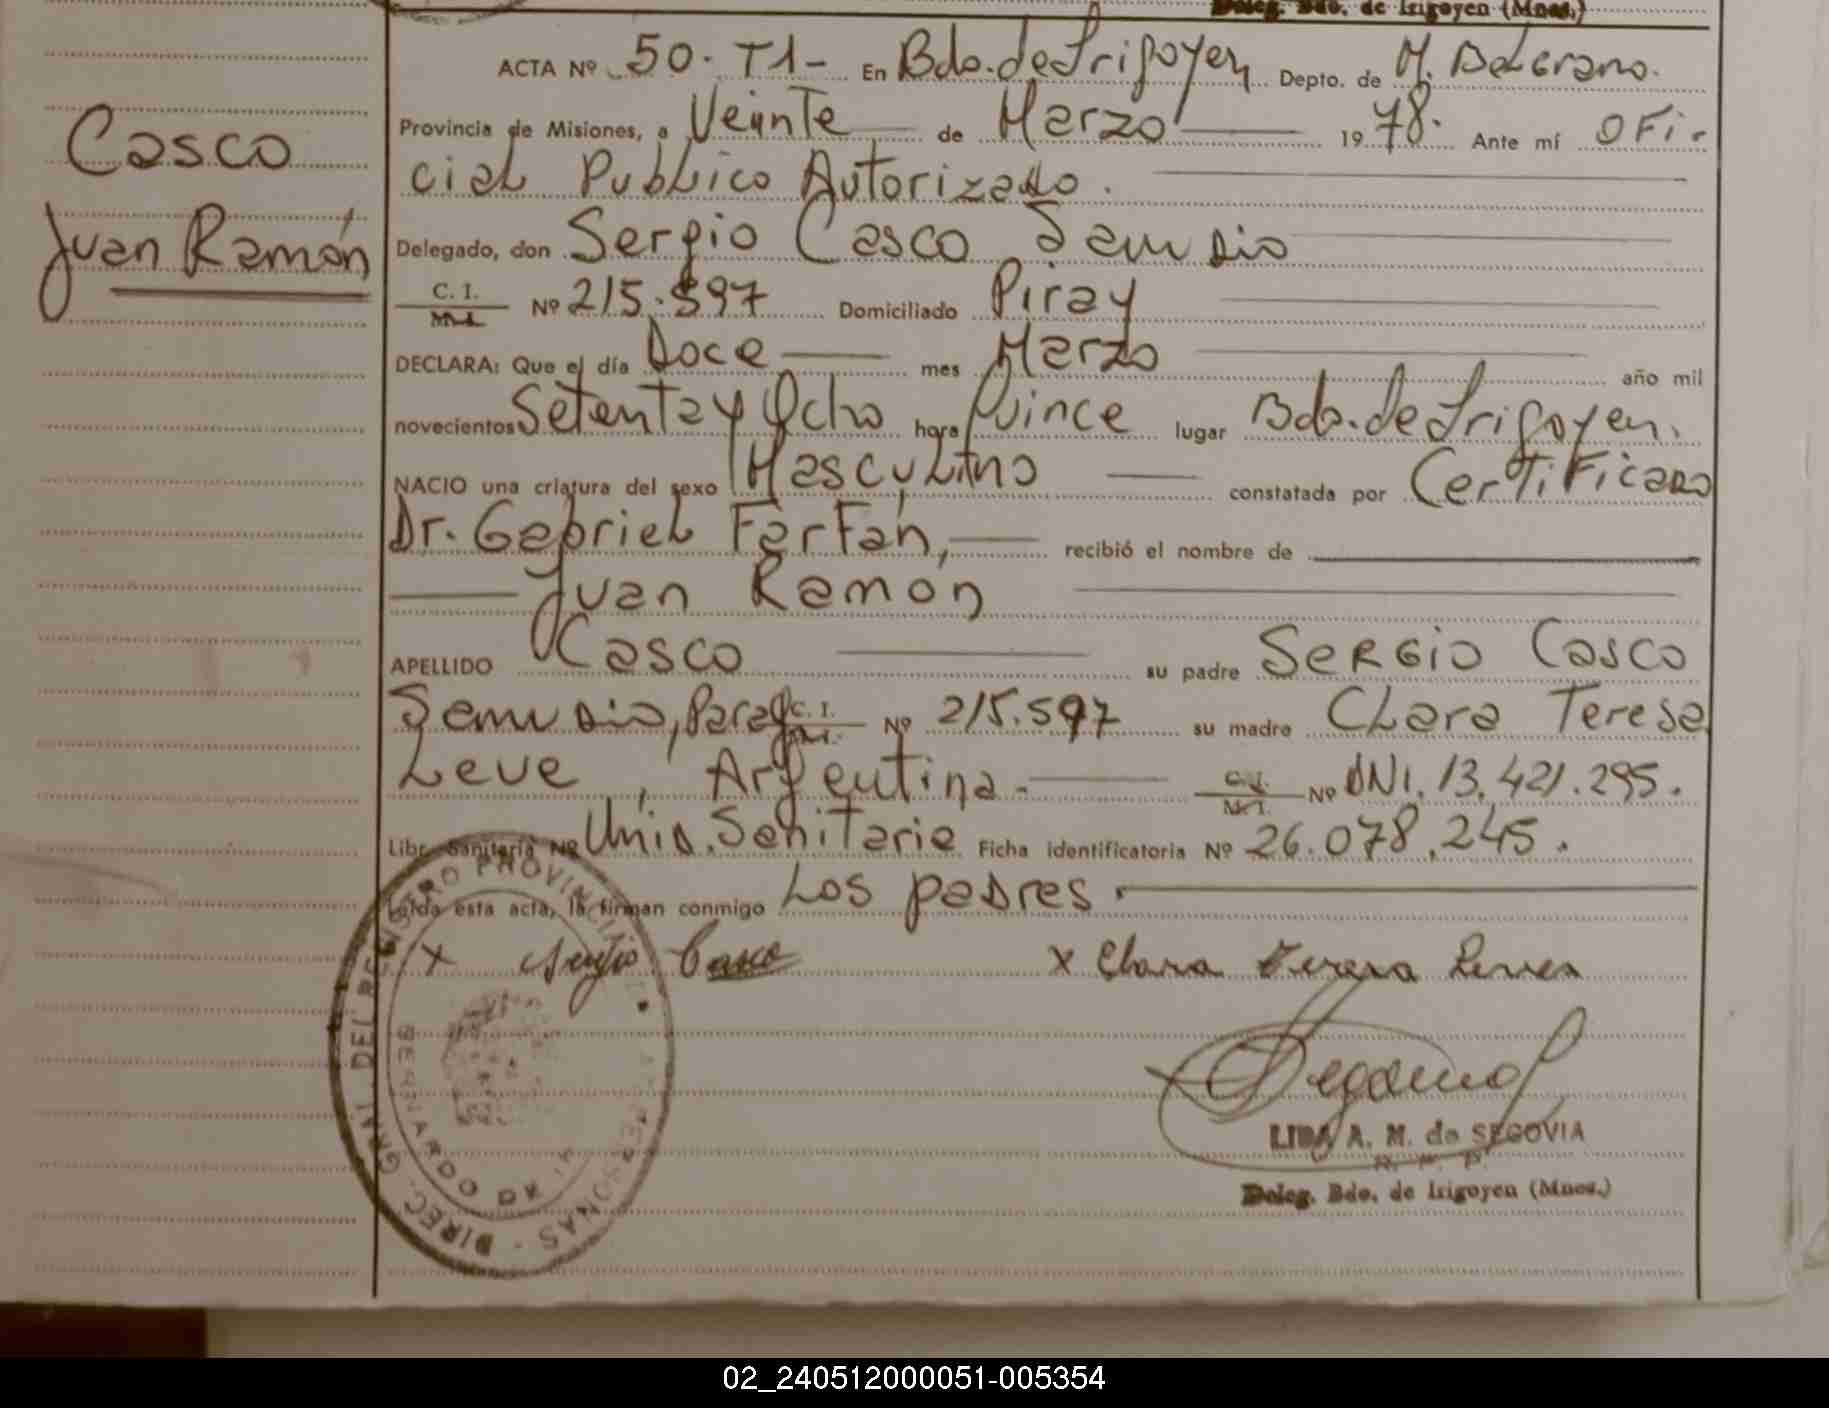 Deleg. Bdo. de Irigoyen (Mnes.)
ACTA Nº 50. T1- En Bdo. de Irigoyen Depto. de M. Belgrano.
Provincia de Misiones, a Veinte de Marzo 1978. Ante mí Ofi-
cial Publico Autorizado.
Casco
Juan Ramón
Delegado, don Sergio Casco Samudio
C. I. Nº 215.597 Domiciliado Piray
M.I.
DECLARA: Que el día Doce mes Marzo año mil
novecientos Setenta y Ocho hora Quince lugar Bdo. de Irigoyen.
NACIO una criatura del sexo Masculino constatada por Certificado
Dr. Gabriel Farfán, recibió el nombre de
Juan Ramón
APELLIDO Casco su padre Sergio Casco
Samudio, Parag. C. I. Nº 215.597 su madre Clara Teresa
M.I.
Leve, Argentina. C. I. Nº DNI. 13.421.295.
M. I.
Libr. Sanitaria Nº Unid. Sanitaria Ficha identificatoria Nº 26.078.245.
Leída esta acta, la firman conmigo Los padres.
x Sergio Casco x Clara Teresa
DIREC. GRAL DEL REGISTRO PROVINCIAL DE LAS PERSONAS
BERNARDO DE IR
LIDA A. M. de SEGOVIA
Deleg. Bdo. de Irigoyen (Mnes.)
02_240512000051-005354